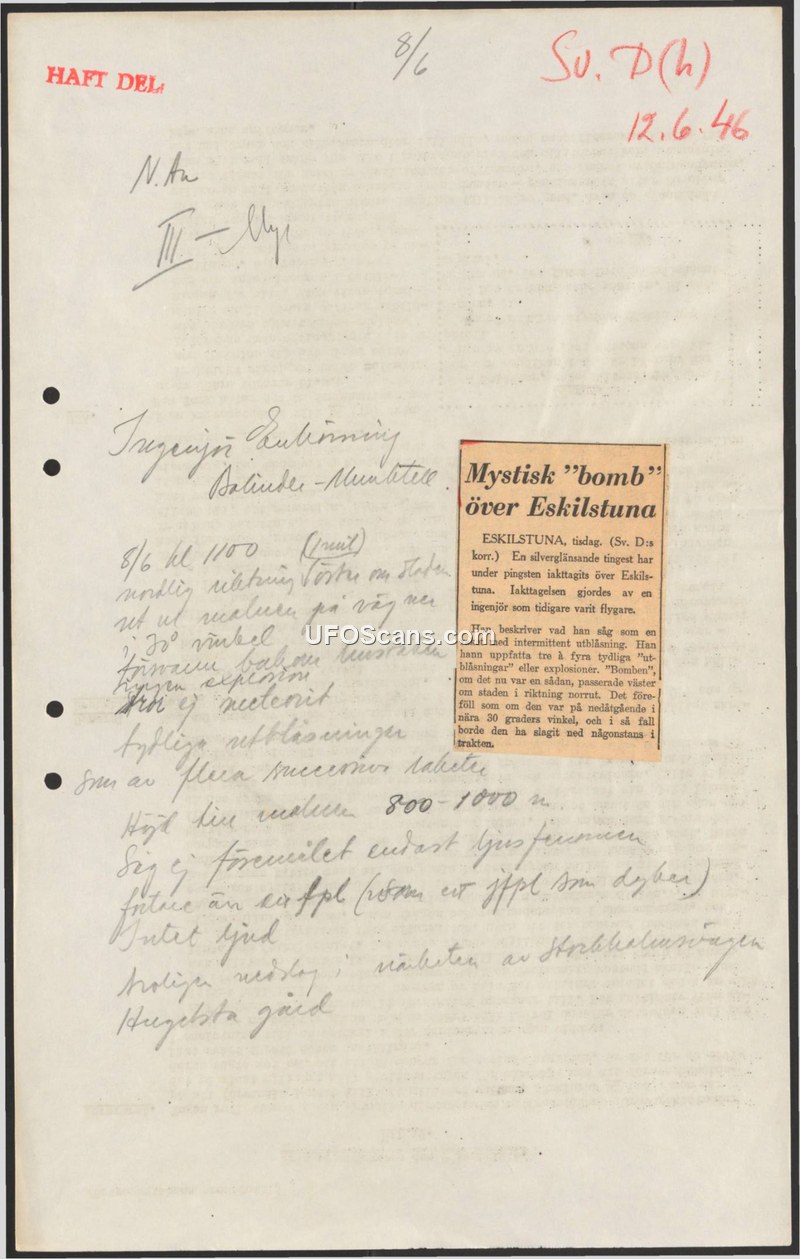 HAFT DEL.
8/6
Sv. D(h)
12.6.46
N. An
III –
Ingenjör Enhörning
Bolinder-Munktell.
8/6 kl 1100 (1 mil)
nordlig riktning öster om staden
ut ur molnen på väg ner
i 30° vinkel
försvann bakom
ingen explosion
ej meteorit
tydliga utblåsningar
som av flera successiva raketer
Höjd till molnen 800-1000 m.
Såg ej föremålet endast ljusfenomen
fortare än fpl (som ett jfpl som dyker)
Intet ljud
troligen nedslag i närheten av Stockholmsvägen
gård
Mystisk "bomb"
över Eskilstuna
ESKILSTUNA, tisdag. (Sv. D:s
korr.) En silverglänsande tingest har
under pingsten iakttagits över Eskils-
tuna. Iakttagelsen gjordes av en
ingenjör som tidigare varit flygare.
Han beskriver vad han såg som en
med intermittent utblåsning. Han
hann uppfatta tre à fyra tydliga "ut-
blåsningar" eller explosioner. "Bomben",
om det nu var en sådan, passerade väster
om staden i riktning norrut. Det före-
föll som om den var på nedåtgående i
nära 30 graders vinkel, och i så fall
borde den ha slagit ned någonstans i
trakten.
UFOScans.com